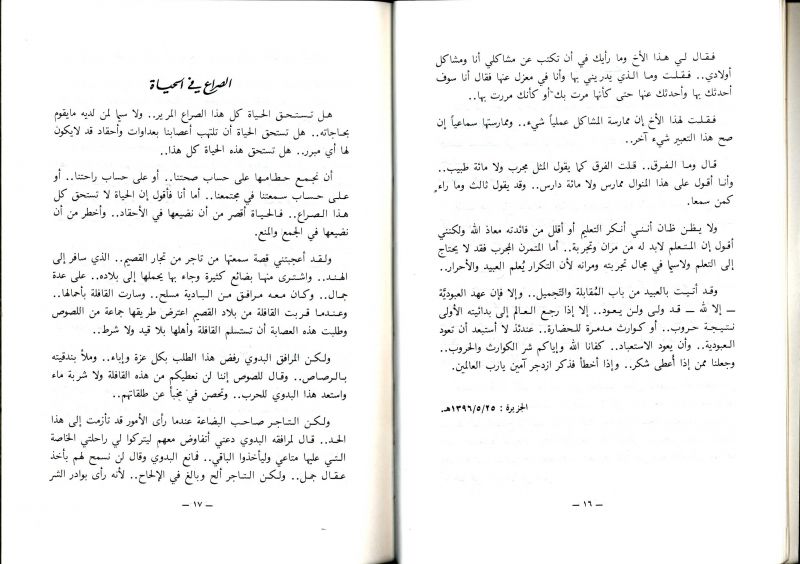 فـقـال لـي هـذا الأخ وما رأيك في أن تكتب عن مشاكلي أنا ومشاكل
أولادي.. فـقـلـت ومـا الـذي يدريني بها وأنا في معزل عنها فقال أنا سوف
أحدثك بها وأحدثك عنها حتى كأنها مرت بك أو كأنك مررت بها..
فـقـلـت لهذا الأخ إن ممارسة المشاكل عملياً شيء.. وممارستها سماعياً إن
صح هذا التعبير شيء آخر..
قـال ومـا الـفـرق.. قـلت الفرق كما يقول المثل مجرب ولا مائة طبيب..
وأنـا أقـول عـلـى هذا المنوال ممارس ولا مائة دارس.. وقد يقول ثالث وما راءٍ
كمن سمعا.
ولا يـظـن ظـان أنـنـي أنـكر التعليم أو أقلل من فائدته معاذ الله ولكنني
أقول إن المـتـعـلم لابد له من مران وتجربة.. أما المتمرن المجرب فقد لا يحتاج
إلى التعلم ولاسيما في مجال تجربته ومرانه لأن التكرار يُعلم العبيد والأحرار..
وقـد أتـيـت بالعبيد من باب المُقابلة والتّجميل.. وإلا فإن عهد العبوديّة
ـ إلا لله ـ قـد ولـى ولـن يـعـود.. إلا إذا رجـع العـالم إلى بدائيته الأولى
نـتـيـجـة حـروب.. أو كوارث مدمرة للحضارة.. عندئذ لا أستبعد أن تعود
العـبـوديـة.. وأن يعود الاستعباد.. كفانا الله وإياكم شر الكوارث والحروب..
وجعلنا ممن إذا أُعطى شكر.. وإذا أخطأ فذكر ازدجر آمين يارب العالمين.
الجزيرة : ١٣٩٦/٥/٢٥هـ.
ـ ١٦ ـ
الصراع في الحياة
هـل تـسـتـحـق الحياة كل هذا الصراع المرير.. ولا سيما لمن لديه مايقوم
بحاجاته.. هل تستحق الحياة أن تلتهب أعصابنا بعداوات وأحقاد قد لايكون
لها أي مبرر.. هل تستحق هذه الحياة كل هذا..
أن نجـمـع حـطـامـهـا على حساب صحتنا.. أو على حساب راحتنا.. أو
عـلـى حـسـاب سـمعتنا في مجتمعنا.. أما أنا فأقول إن الحياة لا تستحق كل
هـذا الصـراع.. فـالحـيـاة أقصر من أن نضيعها في الأحقاد.. وأخطر من أن
نضيعها في الجمع والمنع.
ولـقـد أعجبتني قصة سمعتها من تاجر من تجار القصيم.. الذي سافر إلى
الهـنـد.. واشـتـرى مـنـهـا بضائع كثيرة وجاء بها يحملها إلى بلاده.. على عدة
جمـال.. وكـان مـعـه مـرافـق مـن البـادية مسلح.. وسارت القافلة بأحمالها..
وعـنـدمـا قـربـت القافلة من بلاد القصيم اعترض طريقها جماعة من اللصوص
وطلبت هذه العصابة أن تستسلم القافلة وأهلها بلا قيد ولا شرط..
ولـكـن المـرافـق البدوي رفض هذا الطلب بكل عزة وإباء.. وملأ بندقيته
بـالـرصـاص.. وقـال للصوص إننا لن نعطيكم من هذه القافلة ولا شربة ماء
واستعد هذا البدوي للحرب.. وتحصن في مخبأ عن طلقاتهم..
ولـكـن الـتـاجـر صـاحـب البضاعة عندما رأى الأمور قد تأزمت إلى هذا
الحـد.. قـال لمرافقه البدوي دعني أتفاوض معهم ليتركوا لي راحلتي الخاصة
الـتـي عليها متاعي وليأخذوا الباقي.. فمانع البدوي وقال لن نسمح لهم بأخذ
عـقـال جمـل.. ولـكـن الـتـاجر ألح وبالغ في الإلحاح.. لأنه رأى بوادر الشر
ـ ١٧ ـ